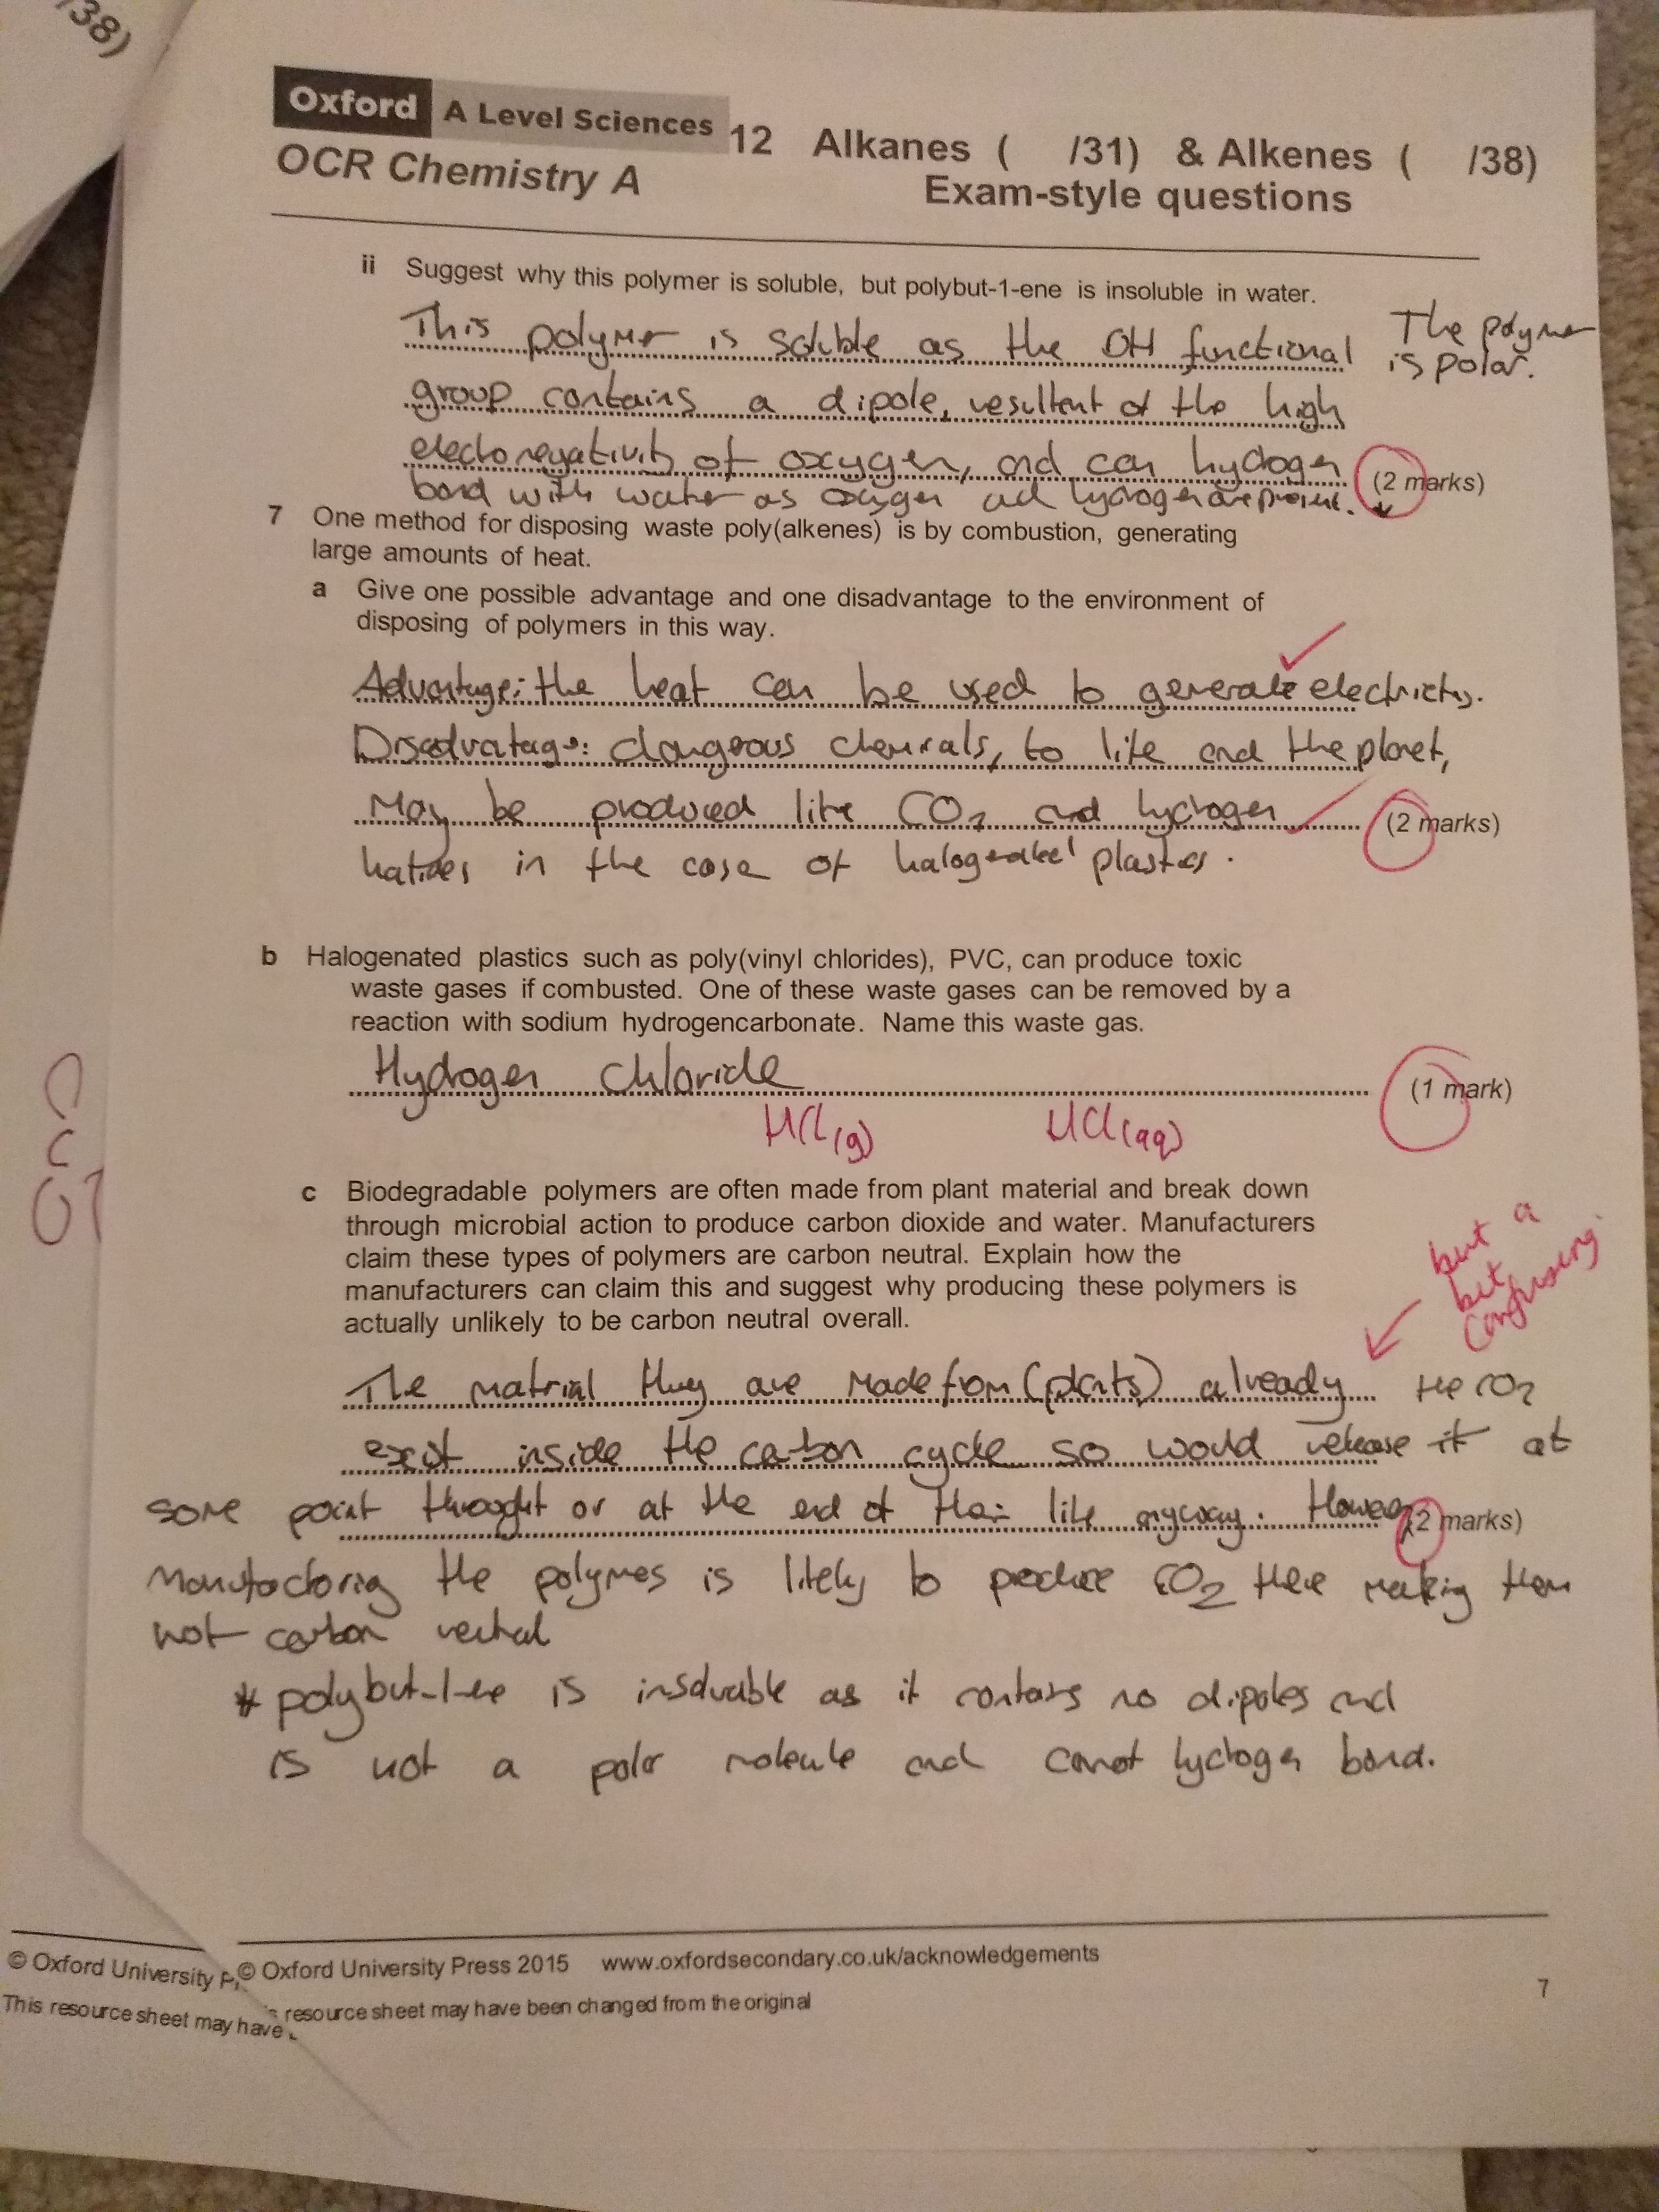 /38)
Oxford A Level Sciences
OCR Chemistry A
12 Alkanes ( /31) & Alkenes ( /38)
Exam-style questions
ii Suggest why this polymer is soluble, but polybut-1-ene is insoluble in water.
This polymer is soluble as the OH functional
The polymer
is polar.
group contains a dipole, resultent of the high
electronegativity of oxygen, and can hydrogen
(2 marks)
bond with water as oxygen ad hydrogen are present.
7 One method for disposing waste poly(alkenes) is by combustion, generating
large amounts of heat.
a Give one possible advantage and one disadvantage to the environment of
disposing of polymers in this way.
Advantage: the heat can be used to generate electricity.
Disadvatage: dangerous chemicals, to life and the planet,
May be produced like CO2 and hydrogen
(2 marks)
halides in the case of halogenated plastics.
b Halogenated plastics such as poly(vinyl chlorides), PVC, can produce toxic
waste gases if combusted. One of these waste gases can be removed by a
reaction with sodium hydrogencarbonate. Name this waste gas.
Hydrogen Chloride
(1 mark)
HCl(g) HCl(aq)
c Biodegradable polymers are often made from plant material and break down
through microbial action to produce carbon dioxide and water. Manufacturers
claim these types of polymers are carbon neutral. Explain how the
manufacturers can claim this and suggest why producing these polymers is
actually unlikely to be carbon neutral overall.
but a
bit
confusing.
The matrial they are made from (plants) already
the CO2
exist inside the carbon cycle so would release it at
some point throught or at the end of their life anyway. However
(2 marks)
Manufactoring the polymes is likely to produce CO2 there making them
not carbon neutral
* polybut-1-ene is insoluable as it contains no dipoles and
is not a polar molecule and cannot hydrogen bond.
© Oxford University Press 2015 www.oxfordsecondary.co.uk/acknowledgements
resource sheet may have been changed from the original
7
© Oxford University P
This resource sheet may have